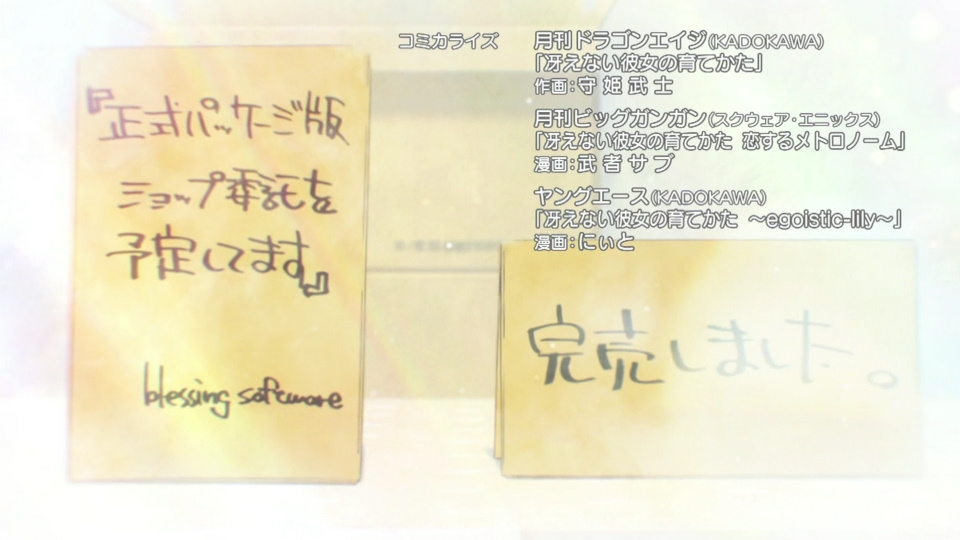 『正式パッケージ版
ショップ委託を
予定してます』
blessing software
コミカライズ
月刊ドラゴンエイジ(KADOKAWA)
「冴えない彼女の育てかた」
作画:守姫武士
月刊ビッグガンガン(スクウェア・エニックス)
「冴えない彼女の育てかた 恋するメトロノーム」
漫画:武者サブ
ヤングエース(KADOKAWA)
「冴えない彼女の育てかた ～egoistic-lily～」
漫画:にぃと
完売しました。